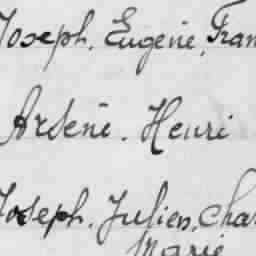 Joseph, Eugène, Fran
Arsène. Henri
Joseph. Julien. Char
Marie